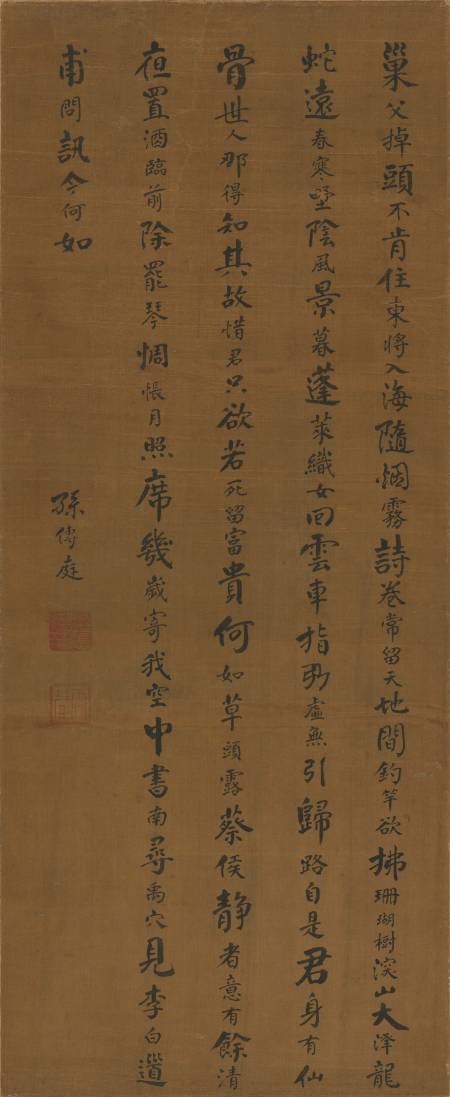 巢父掉頭不肯住東將入海隨烟霧詩卷常留天地間釣竿欲拂珊瑚樹深山大澤龍
蛇遠春寒埜陰風景暮蓬萊織女回雲車指虛無引歸路自是君身有仙
骨世人那得知其故惜君只欲若死留富貴何如草頭露蔡侯静者意有餘清
夜置酒臨前除罷琴惆悵月照席幾歲寄我空中書南尋禹穴見李白道
甫問訊今何如
孫傳庭